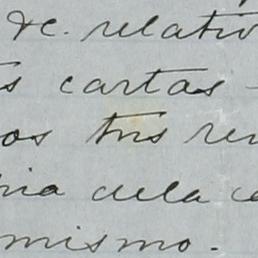 &c. relativ
s cartas
os tus
dela
mismo.